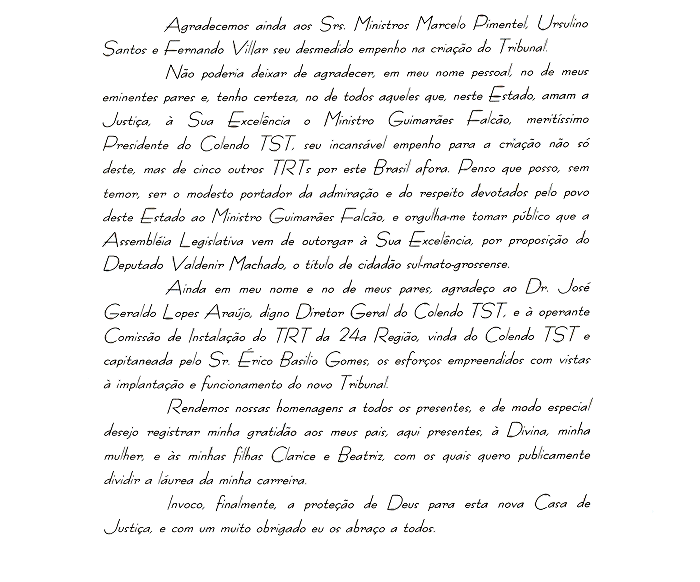 Agradecemos ainda aos Srs. Ministros Marcelo Pimentel, Ursulino
Santos e Fernando Villar seu desmedido empenho na criação do Tribunal.
Não poderia deixar de agradecer, em meu nome pessoal, no de meus
eminentes pares e, tenho certeza, no de todos aqueles que, neste Estado, amam a
Justiça, à Sua Excelência o Ministro Guimarães Falcão, meritíssimo
Presidente do Colendo TST, seu incansável empenho para a criação não só
deste, mas de cinco outros TRTs por este Brasil afora. Penso que posso, sem
temor, ser o modesto portador da admiração e do respeito devotados pelo povo
deste Estado ao Ministro Guimarães Falcão, e orgulha-me tomar público que a
Assembléia Legislativa vem de outorgar à Sua Excelência, por proposição do
Deputado Valdenir Machado, o título de cidadão sul-mato-grossense.
Ainda em meu nome e no de meus pares, agradeço ao Dr. José
Geraldo Lopes Araújo, digno Diretor Geral do Colendo TST, e à operante
Comissão de Instalação do TRT da 24a Região, vinda do Colendo TST e
capitaneada pelo Sr. Érico Basilio Gomes, os esforços empreendidos com vistas
à implantação e funcionamento do novo Tribunal.
Rendemos nossas homenagens a todos os presentes, e de modo especial
desejo registrar minha gratidão aos meus pais, aqui presentes, à Divina, minha
mulher, e às minhas filhas Clarice e Beatriz, com os quais quero publicamente
dividir a láurea da minha carreira.
Invoco, finalmente, a proteção de Deus para esta nova Casa de
Justiça, e com um muito obrigado eu os abraço a todos.